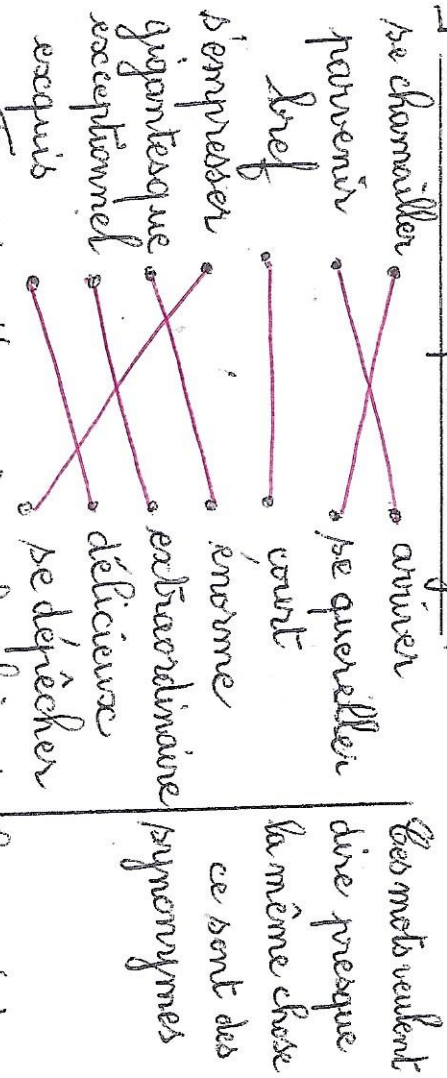 se chamailler
parvenir
bref
s'empresser
gigantesque
exceptionnel
exquis
arriver
se quereller
court
énorme
extraordinaire
délicieux
se dépêcher
Ces mots veulent
dire presque
la même chose
ce sont des
synonymes